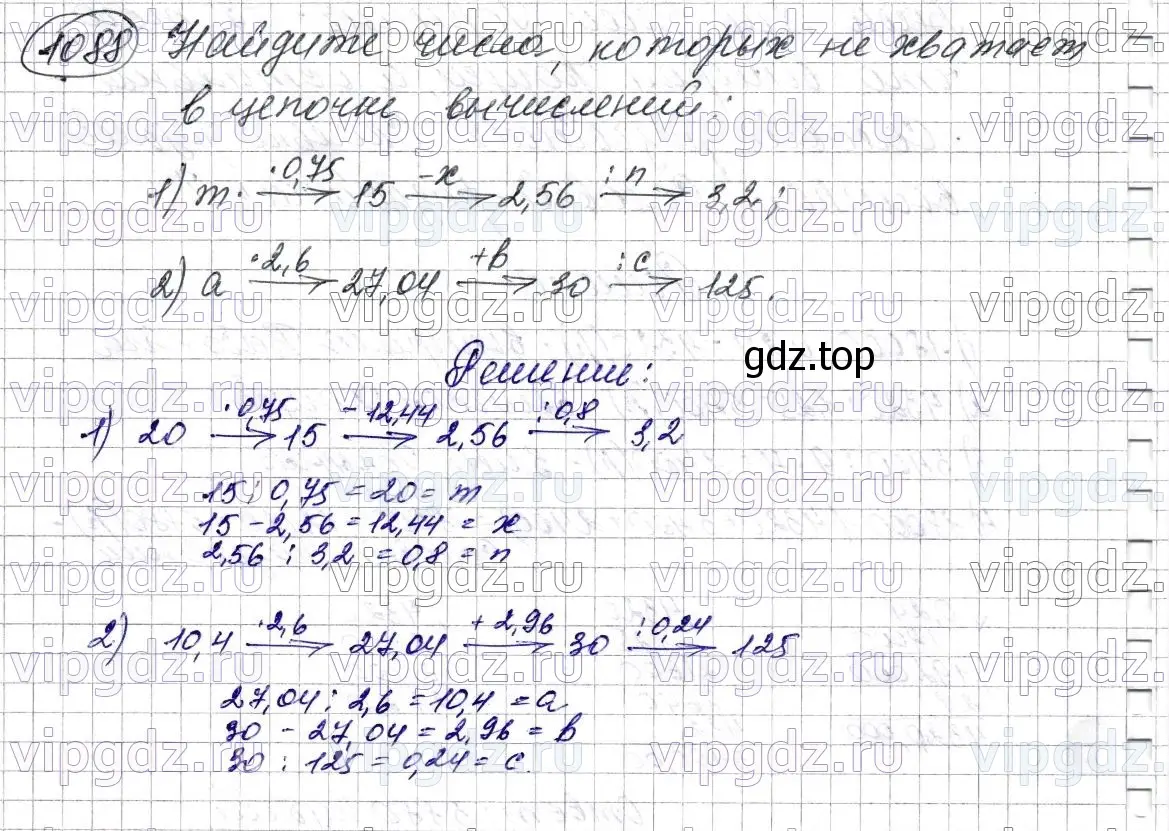 1088 Найдите числа, которых не хватает
в цепочке вычислений:
1) m · ·0,75→ 15 -x→ 2,56 :n→ 3,2;
2) a ·2,6→ 27,04 +b→ 30 :c→ 125.
Решение:
gdz.top
1) 20 ·0,75→ 15 -12,44→ 2,56 :0,8→ 3,2
15 : 0,75 = 20 = m
15 - 2,56 = 12,44 = x
2,56 : 3,2 = 0,8 = n
2) 10,4 ·2,6→ 27,04 +2,96→ 30 :0,24→ 125
27,04 : 2,6 = 10,4 = a
30 - 27,04 = 2,96 = b
30 : 125 = 0,24 = c.
vipgdz.ru